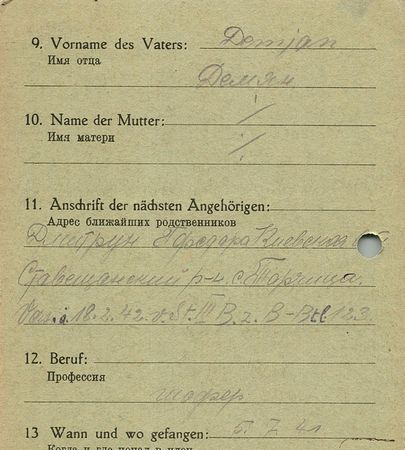 9. Vorname des Vaters: Demjan
Имя отца
Демян
10. Name der Mutter: /
Имя матери
/
11. Anschrift der nächsten Angehörigen:
Адрес ближайших родственников
Дмитрун Киевская
Ставещанский р-н. с. Торчица.
18.2.42 v. St. III B. z. B-Btl. 123
12. Beruf:
Профессия
шофер
13 Wann und wo gefangen: 5. 7. 41
Когда и где попал в плен